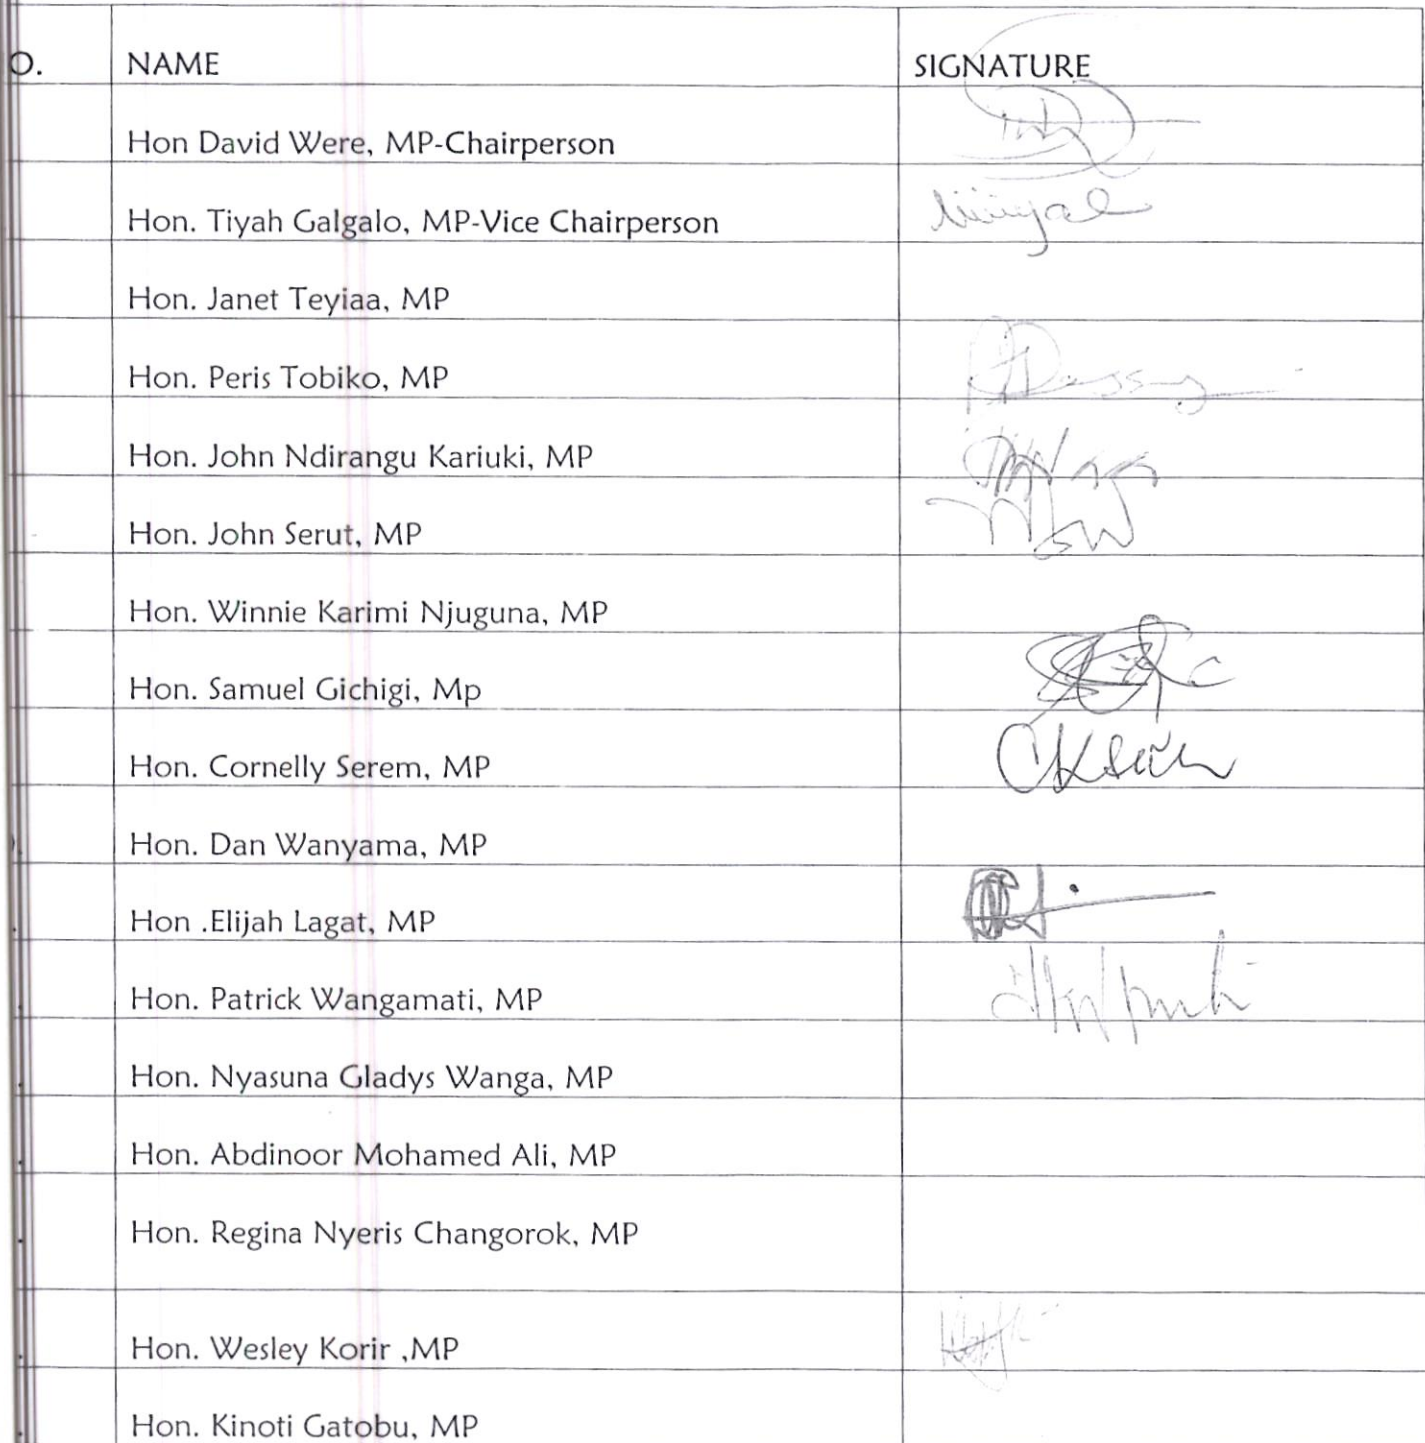 O. NAME SIGNATURE
Hon David Were, MP-Chairperson
Hon. Tiyah Galgalo, MP-Vice Chairperson
Hon. Janet Teyiaa, MP
Hon. Peris Tobiko, MP
Hon. John Ndirangu Kariuki, MP
Hon. John Serut, MP
Hon. Winnie Karimi Njuguna, MP
Hon. Samuel Gichigi, Mp
Hon. Cornelly Serem, MP
Hon. Dan Wanyama, MP
Hon .Elijah Lagat, MP
Hon. Patrick Wangamati, MP
Hon. Nyasuna Gladys Wanga, MP
Hon. Abdinoor Mohamed Ali, MP
Hon. Regina Nyeris Changorok, MP
Hon. Wesley Korir ,MP
Hon. Kinoti Gatobu, MP